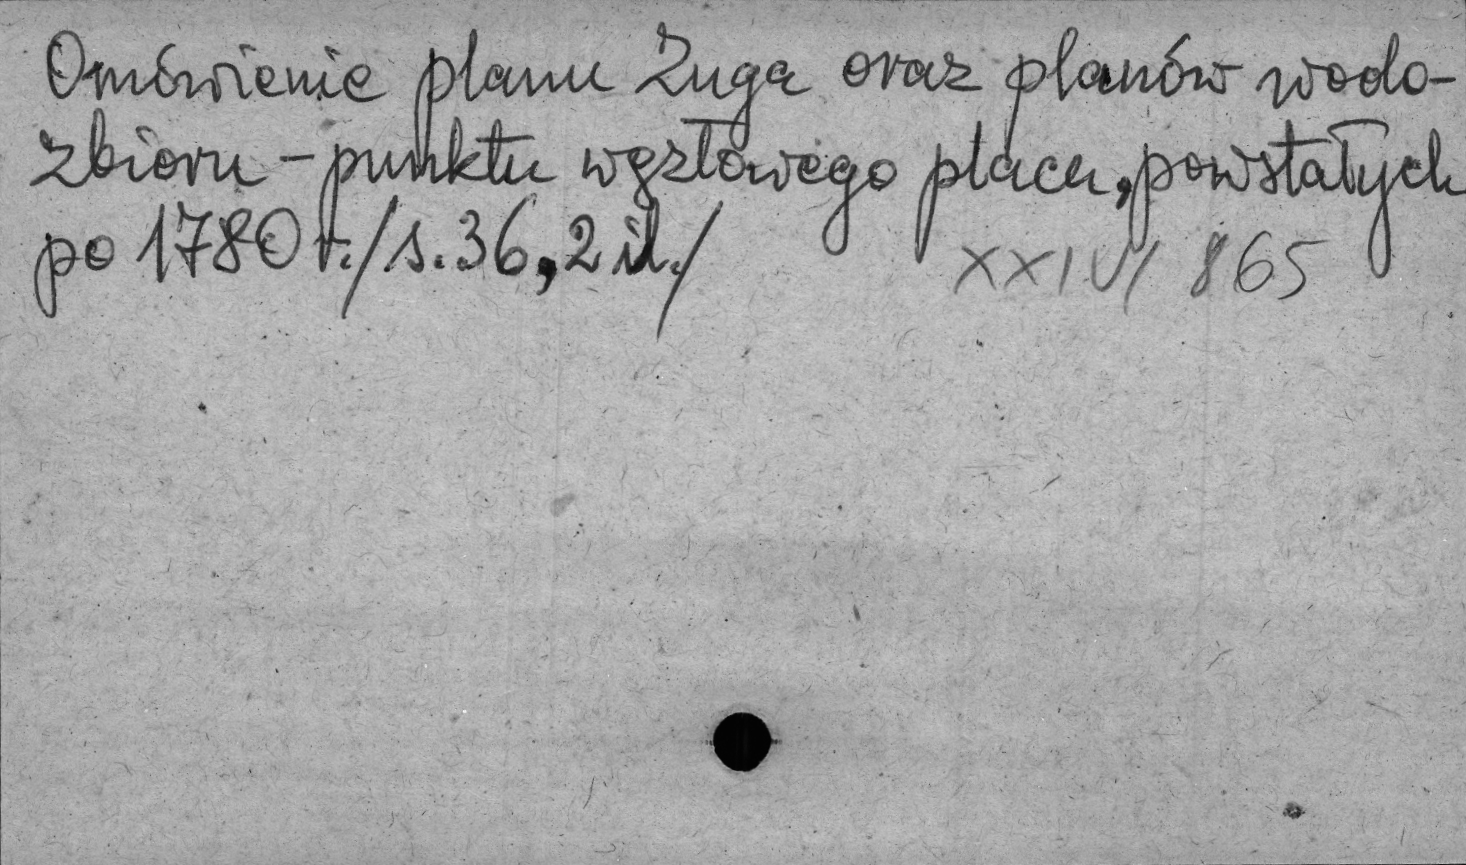 Omówienie planu Zuga oraz planów wodo-
zbioru - punktu węzłowego placu, powstałych
po 1780 r. /s. 36, 2 il./ XXIV/ 865